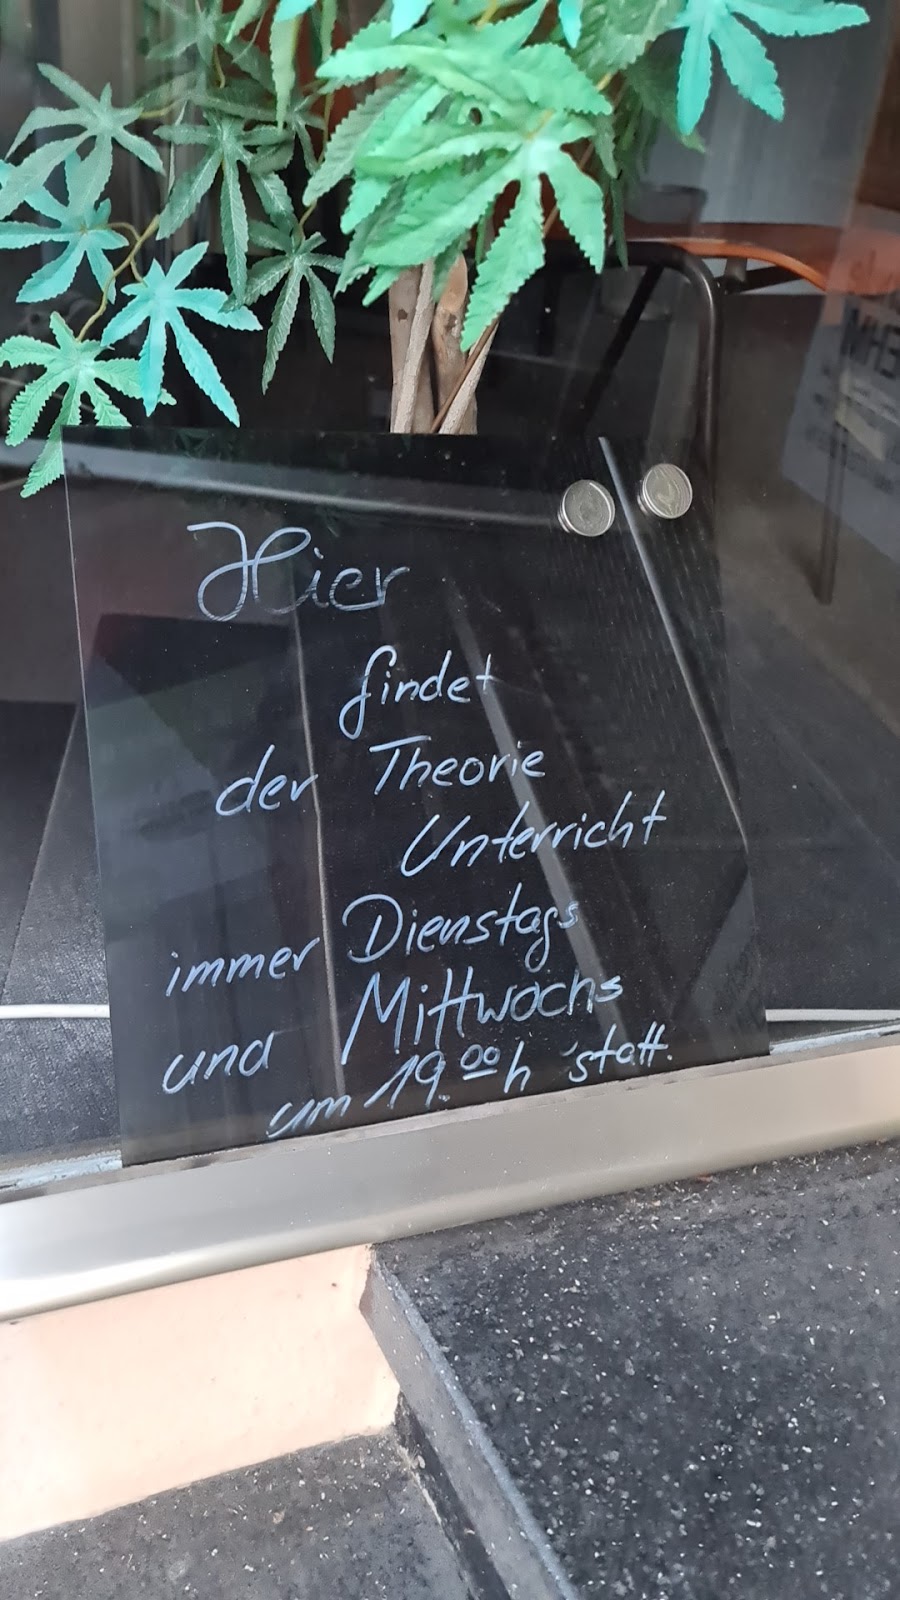 Hier
findet
der Theorie
Unterricht
immer Dienstags
und Mittwochs
um 19.00 h statt.